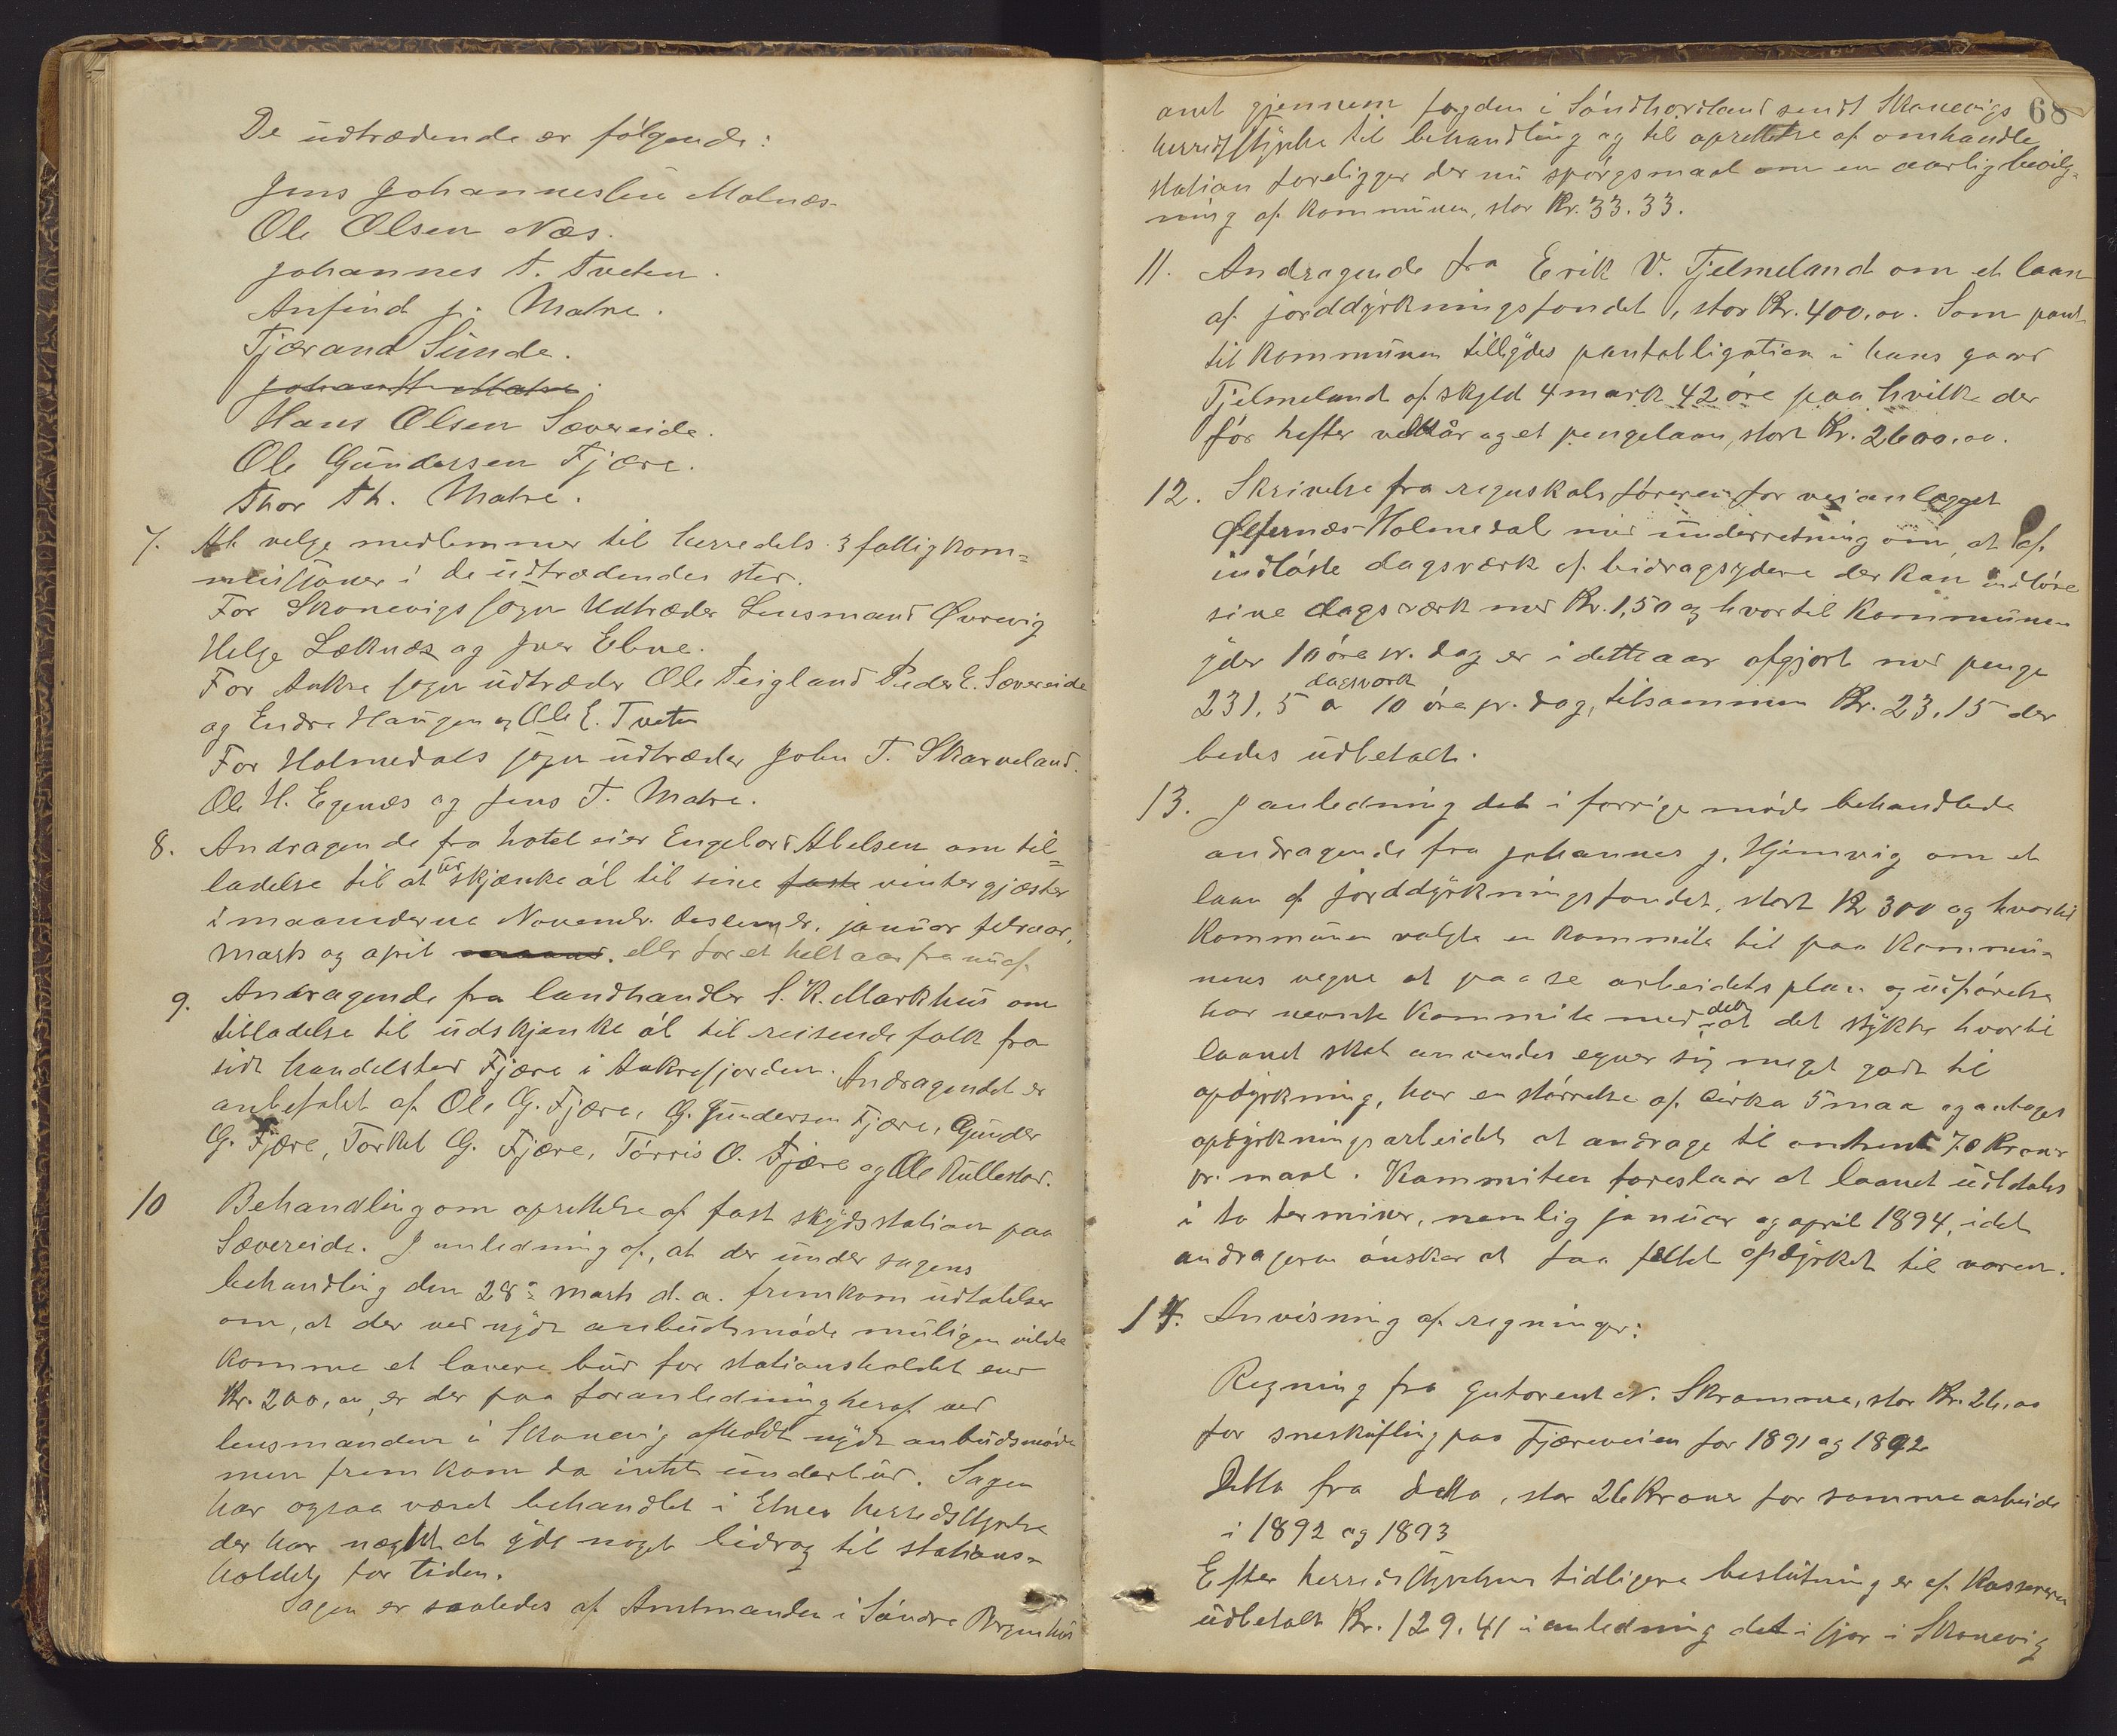 De udtrædende er følgende:
Jens Johannessen Malnæs
Ole Olsen Næs.
Johannes T. Tveten.
Anfind J. Matre.
Tjærand Sunde.
Johan H. Matre.
Hans Olsen Sævereide.
Ole Gundersen Fjære.
Thor Th. Matre.
7. At velge medlemmer til herredets 3 fattigkom=
missioner i de udtrædendes sted.
For Skonevigs sogn Udtræder Lensmand Øvrevig
Helge Løknæs og Iver Ebne.
For Aakre sogn udtræder Ole Teigland Peder E. Sævereide
og Endre Haugen og Ole E. Tveten
For Holmedals sogn udtræder John T. Skarveland.
Ole H. Egenæs og Jens T. Matre.
8. Andragende fra hoteleier Engelbart Abelsen om til=
ladelse til at udskjænke øl til sine faste vintergjæster
i maanederne Novembr. desembr. januar februar,
marts og april maaned. eller for et helt aar fra nu af.
9. Andragende fra landhandler S. K. Markhus om
tilladelse til udskjenke øl til reisende folk fra
sidt handelsted Fjære i Aakrefjorden. Andragendet er
anbefalet af Ole G. Fjære, G. Gundersen Fjære, Gunder
G. Fjære, Torkel G. Fjære, Tørris O. Fjære og Ole Rullestad.
10 Behandling om oprettelse af fast skydsstation paa
Sævereide. I anledning af, at der under sagens
behandling den 28de marts d. a. fremkom udtalelser
om, at der ved nydt anbudsmøde muligen vilde
komme et lavere bud for stationsholdet end
Kr. 200,00, er der paa foranledning heraf ved
lensmanden i Skonevig afholdt nydt anbudsmøde
men fremkom da intet underbud. Sagen
har ogsaa været behandlet i Etnes herredsstyrelse
der har nægtet at yde noget bidrag til stations=
holdet for tiden.
Sagen er saaledes af Amtmanden i Søndre Bergenhus
68
amt gjennem fogden i Søndhordland sendt Skonevigs
herredsstyrelse til behandling og til oprettelse af omhandlede
station foreligger der nu spørgsmaal om en aarlig bevilg=
ning af kommunen, stor Kr. 33.33.
11. Andragende fra Erik V. Tjelmeland om et laan
af jorddyrkningsfondet, stor Kr. 400,00. Som pant
til kommunen tillydes pantobligation i hans gaard
Tjelmeland af skyld 4 mark 42 øre paa hvilke der
før hefter velkår og et pengelaan, stort Kr. 2600,00.
12. Skrivelse fra regnskabsføreren for veianlægget
Ølfernæs-Holmedal med underretning om, at af
indløste dagsværk af bidragsydere der kan indløse
sine dagsværk med Kr. 1,50 og hvortil kommunen
yder 10 øre pr. dag er i dette aar afgjort med penge
231,5 dagsværk a 10 øre pr. dag, tilsammen Kr. 23,15 der
bedes udbetalt.
13. I anledning det i forrige møde behandlede
andragende fra Johannes J. Hjemvig om et
laan af jorddyrkningsfondet, stort Kr 300 og hvortil
Kommunen valgte en kommite til paa Kommu=
nens vegne at paase arbeidets plan og udførelse
har nevnte kommite meddelt at det stykke hvortil
laanet skal anvendes egner sig meget godt til
opdyrkning, har en størrelse af cirka 5 maa og antages
opdyrkningsarbeidet at andrage til omtrent 70 Kroner
pr. maal. Kommiteen foreslaar at laanet udbetales
i to terminer, nemlig januar og april 1894, idet
andrageren ønsker at faa feltet opdyrket til vaaren.
14. Anvisning af regninger:
Regning fra Gutorent N. Skramme, stor Kr. 26,00
for sneskufling paa Fjæreveien for 1891 og 1892
Ditto fra detto, stor 26 Kroner for samme arbeide
i 1892 og 1893
Efter herredsstyrelsens tidligere beslutning er af Kassereren
udbetalt Kr. 129.41 i anledning det i fjor i Skonevig